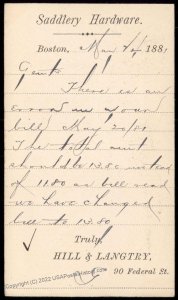 Saddlery Hardware.
Boston, May 24 1881
Gents
There is an
error in your
bill May 20/81
The total amt
should be 13.80 instead
of 11.80 as bill read
we have changed
bill to 13.80
Truly,
HILL & LANGTRY,
90 Federal St.
Copyright (C) 2022 USAPostalHistory.com